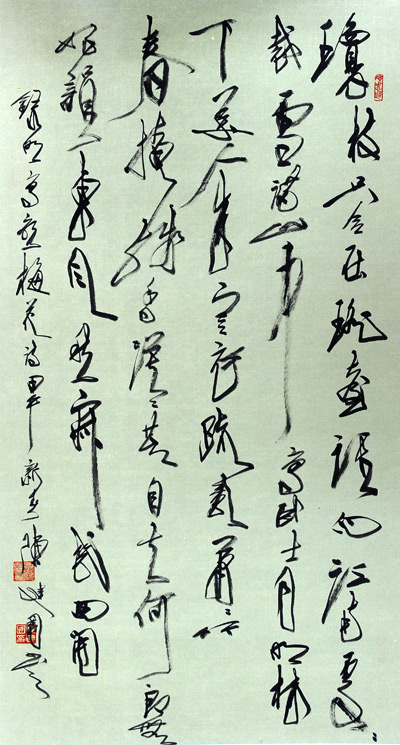 瓊枝只合在瑤臺誰向江南處處
栽雪滿山中高臥士月明林
下美人來寒依疏影蕭蕭竹
春掩殘香漠漠苔自去何郎無
好東風愁寂幾回開
錄明高啟梅花詩甲午新春陳書